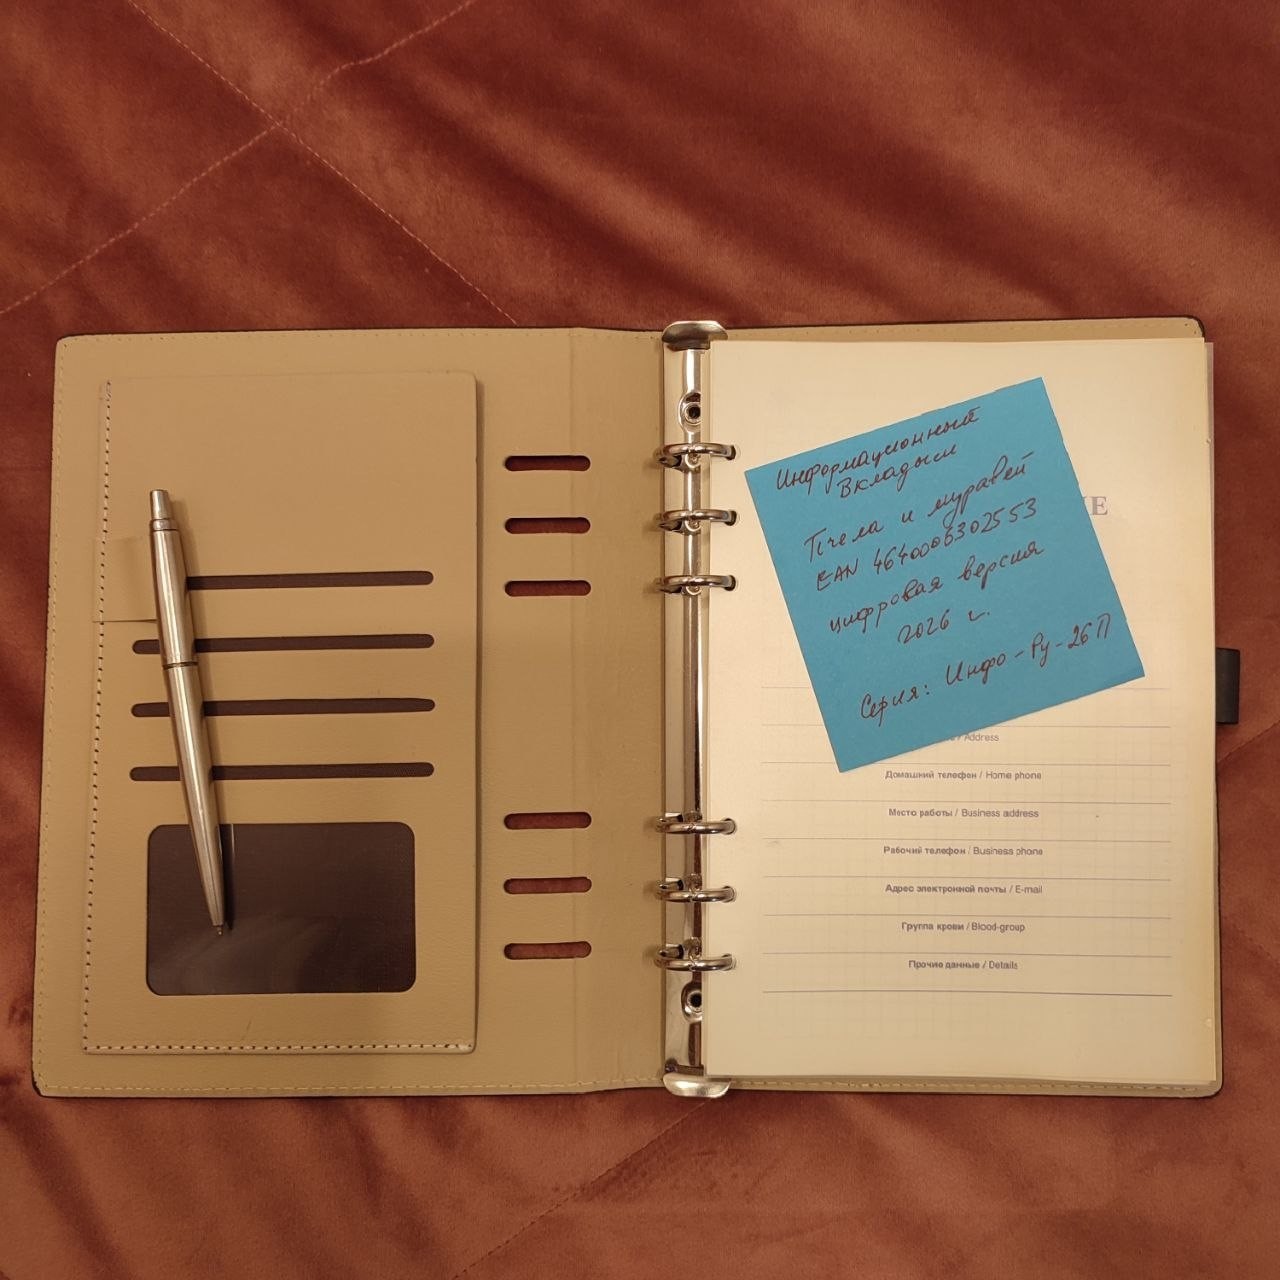 Информационный
Вкладыш
Пчела и муравей
EAN 4640006302553
цифровая версия
2026 г.
Серия: Инфо-Ру-26П
/ Address
Домашний телефон / Home phone
Место работы / Business address
Рабочий телефон / Business phone
Адрес электронной почты / E-mail
Группа крови / Blood-group
Прочие данные / Details